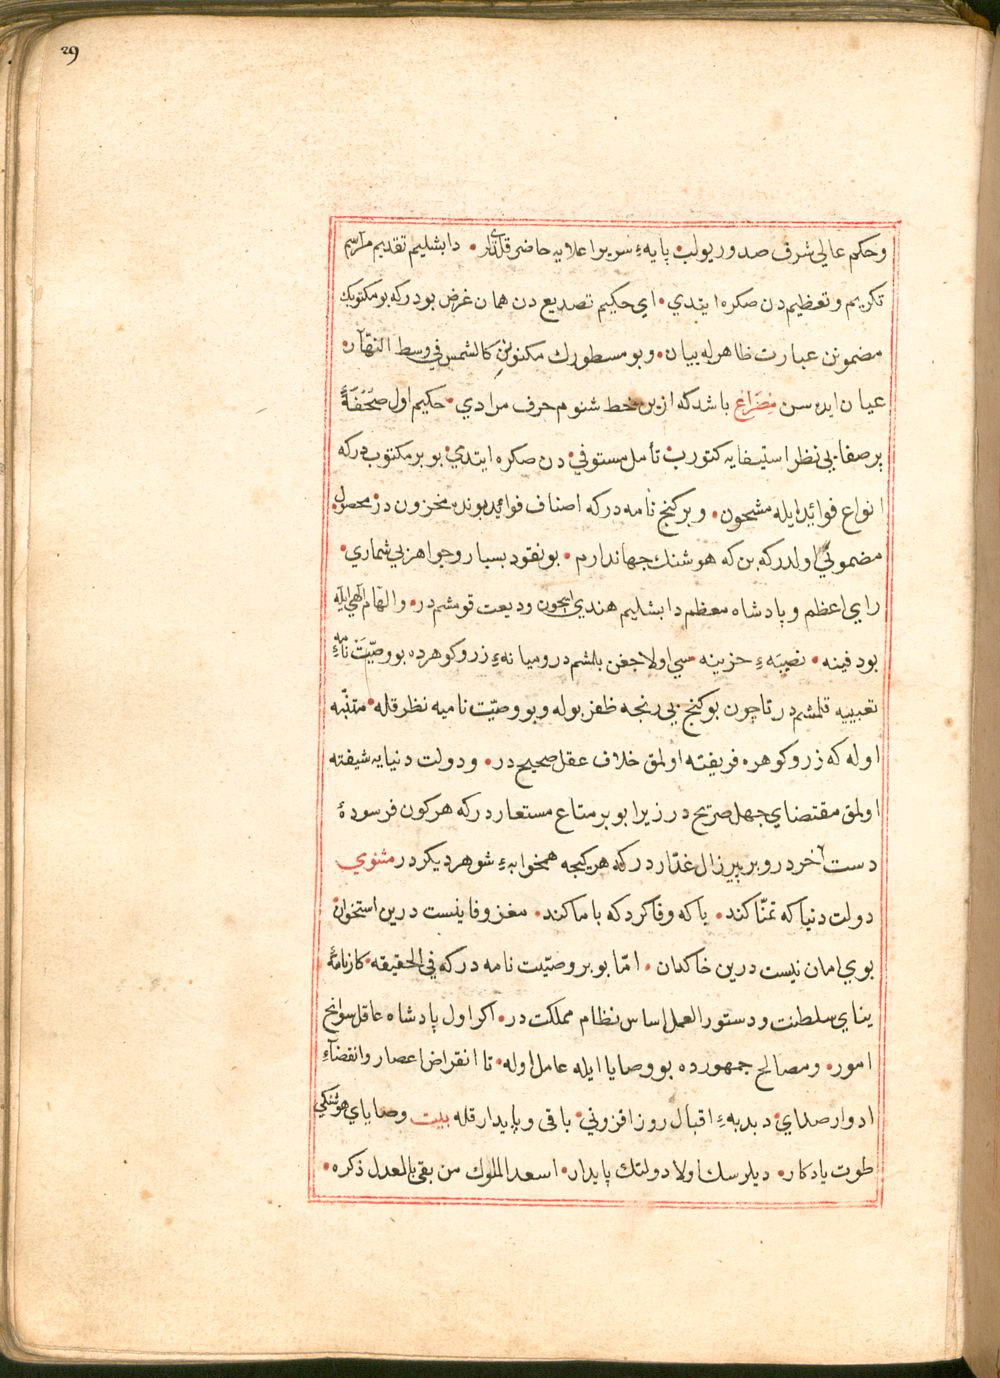 29
وحكم عالى شرف صدور بولب پايهٔ سرير اعلايه حاضر قلدىلر • دابشليم تقديم مراسم
تكريم وتعظيم دن صكره ايتدي • اي حكيم تصديع دن همان غرض بودركه بو مكتوبك
مضمونن عبارت ظاهر له بيان • وبو مسطورك مكنونن كالشمس في وسط النهار •
عيان ايده سن مصراع باشد كه ازين خط شنوم حرف مرادي • حكيم اول صحفهٔ
پر صفايي نظر استيفايه كتورب تأمل مستوفي دن صكره ايتدي • بو بر مكتوب دركه
انواع فوائد ايله مشحون • وبر كنج نامه دركه اصناف فوائد بونده مخزون در • محصول
مضموني اولدركه بن كه هوشنك جهاندارم • بو نقود بسيار وجواهر بي شماري •
راي اعظم وپادشاه معظم دابشليم هندي ايچون وديعت قومشم در • والهام الهي ايله
بو دفينه • نصيبهٔ حزينه سي اولاجغن بلشم در وميانهٔ زر وكوهرده بو وصيت نامهٔ
تعبيه قلمشم در تا چون بو كنج بي رنجه ظفر بوله وبو وصيت ناميه نظر قله • متنبه
اوله كه زر وكوهره فريفته اولمق خلاف عقل صحيح در • ودولت دنيايه شيفته
اولمق مقتضاي جهل صريح در زيرا بو بر متاع مستعار دركه هر كون فرسودهٔ
دست آخر در وبر پيرزال غدار دركه هر كيجه همخوابهٔ شوهر ديكر در مثنوي
دولت دنيا كه تمنا كند • يا كه وفا كرد كه با ما كند • مغز وفا نيست درين استخوان
بوي امان نيست درين خاكدان • اما بو بر وصيت نامه دركه في الحقيقه • كارنامهٔ
بناي سلطنت ودستور العمل اساس نظام مملكت در • اكر اول پادشاه عاقل سوانح
امور • ومصالح جمهورده بو وصايا ايله عامل اوله • تا انقراض اعصار وانقضآء
ادوار صداي • دبدبهٔ اقبال روز افزوني • باقى وپايدار قله بيت وصاياي هوشنكي
طوت يادكار • ديلرسك اولا دولتك پايدار • اسعد الملوك من بقي بالعدل ذكره •